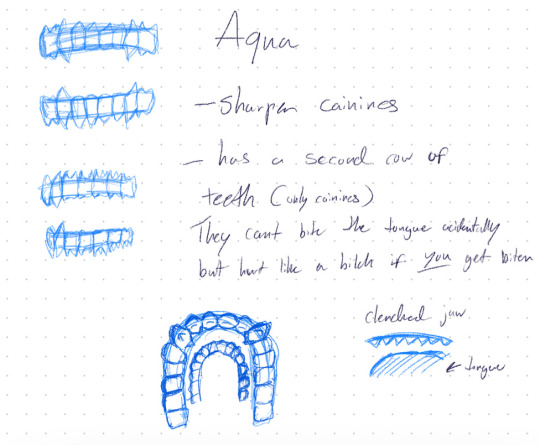 Aqua
- sharper cainines
- has a second row of
teeth (only cainines)
They cant bite the tongue acidentally
but hurt like a bitch if you get biten
clenched jaw
tongue